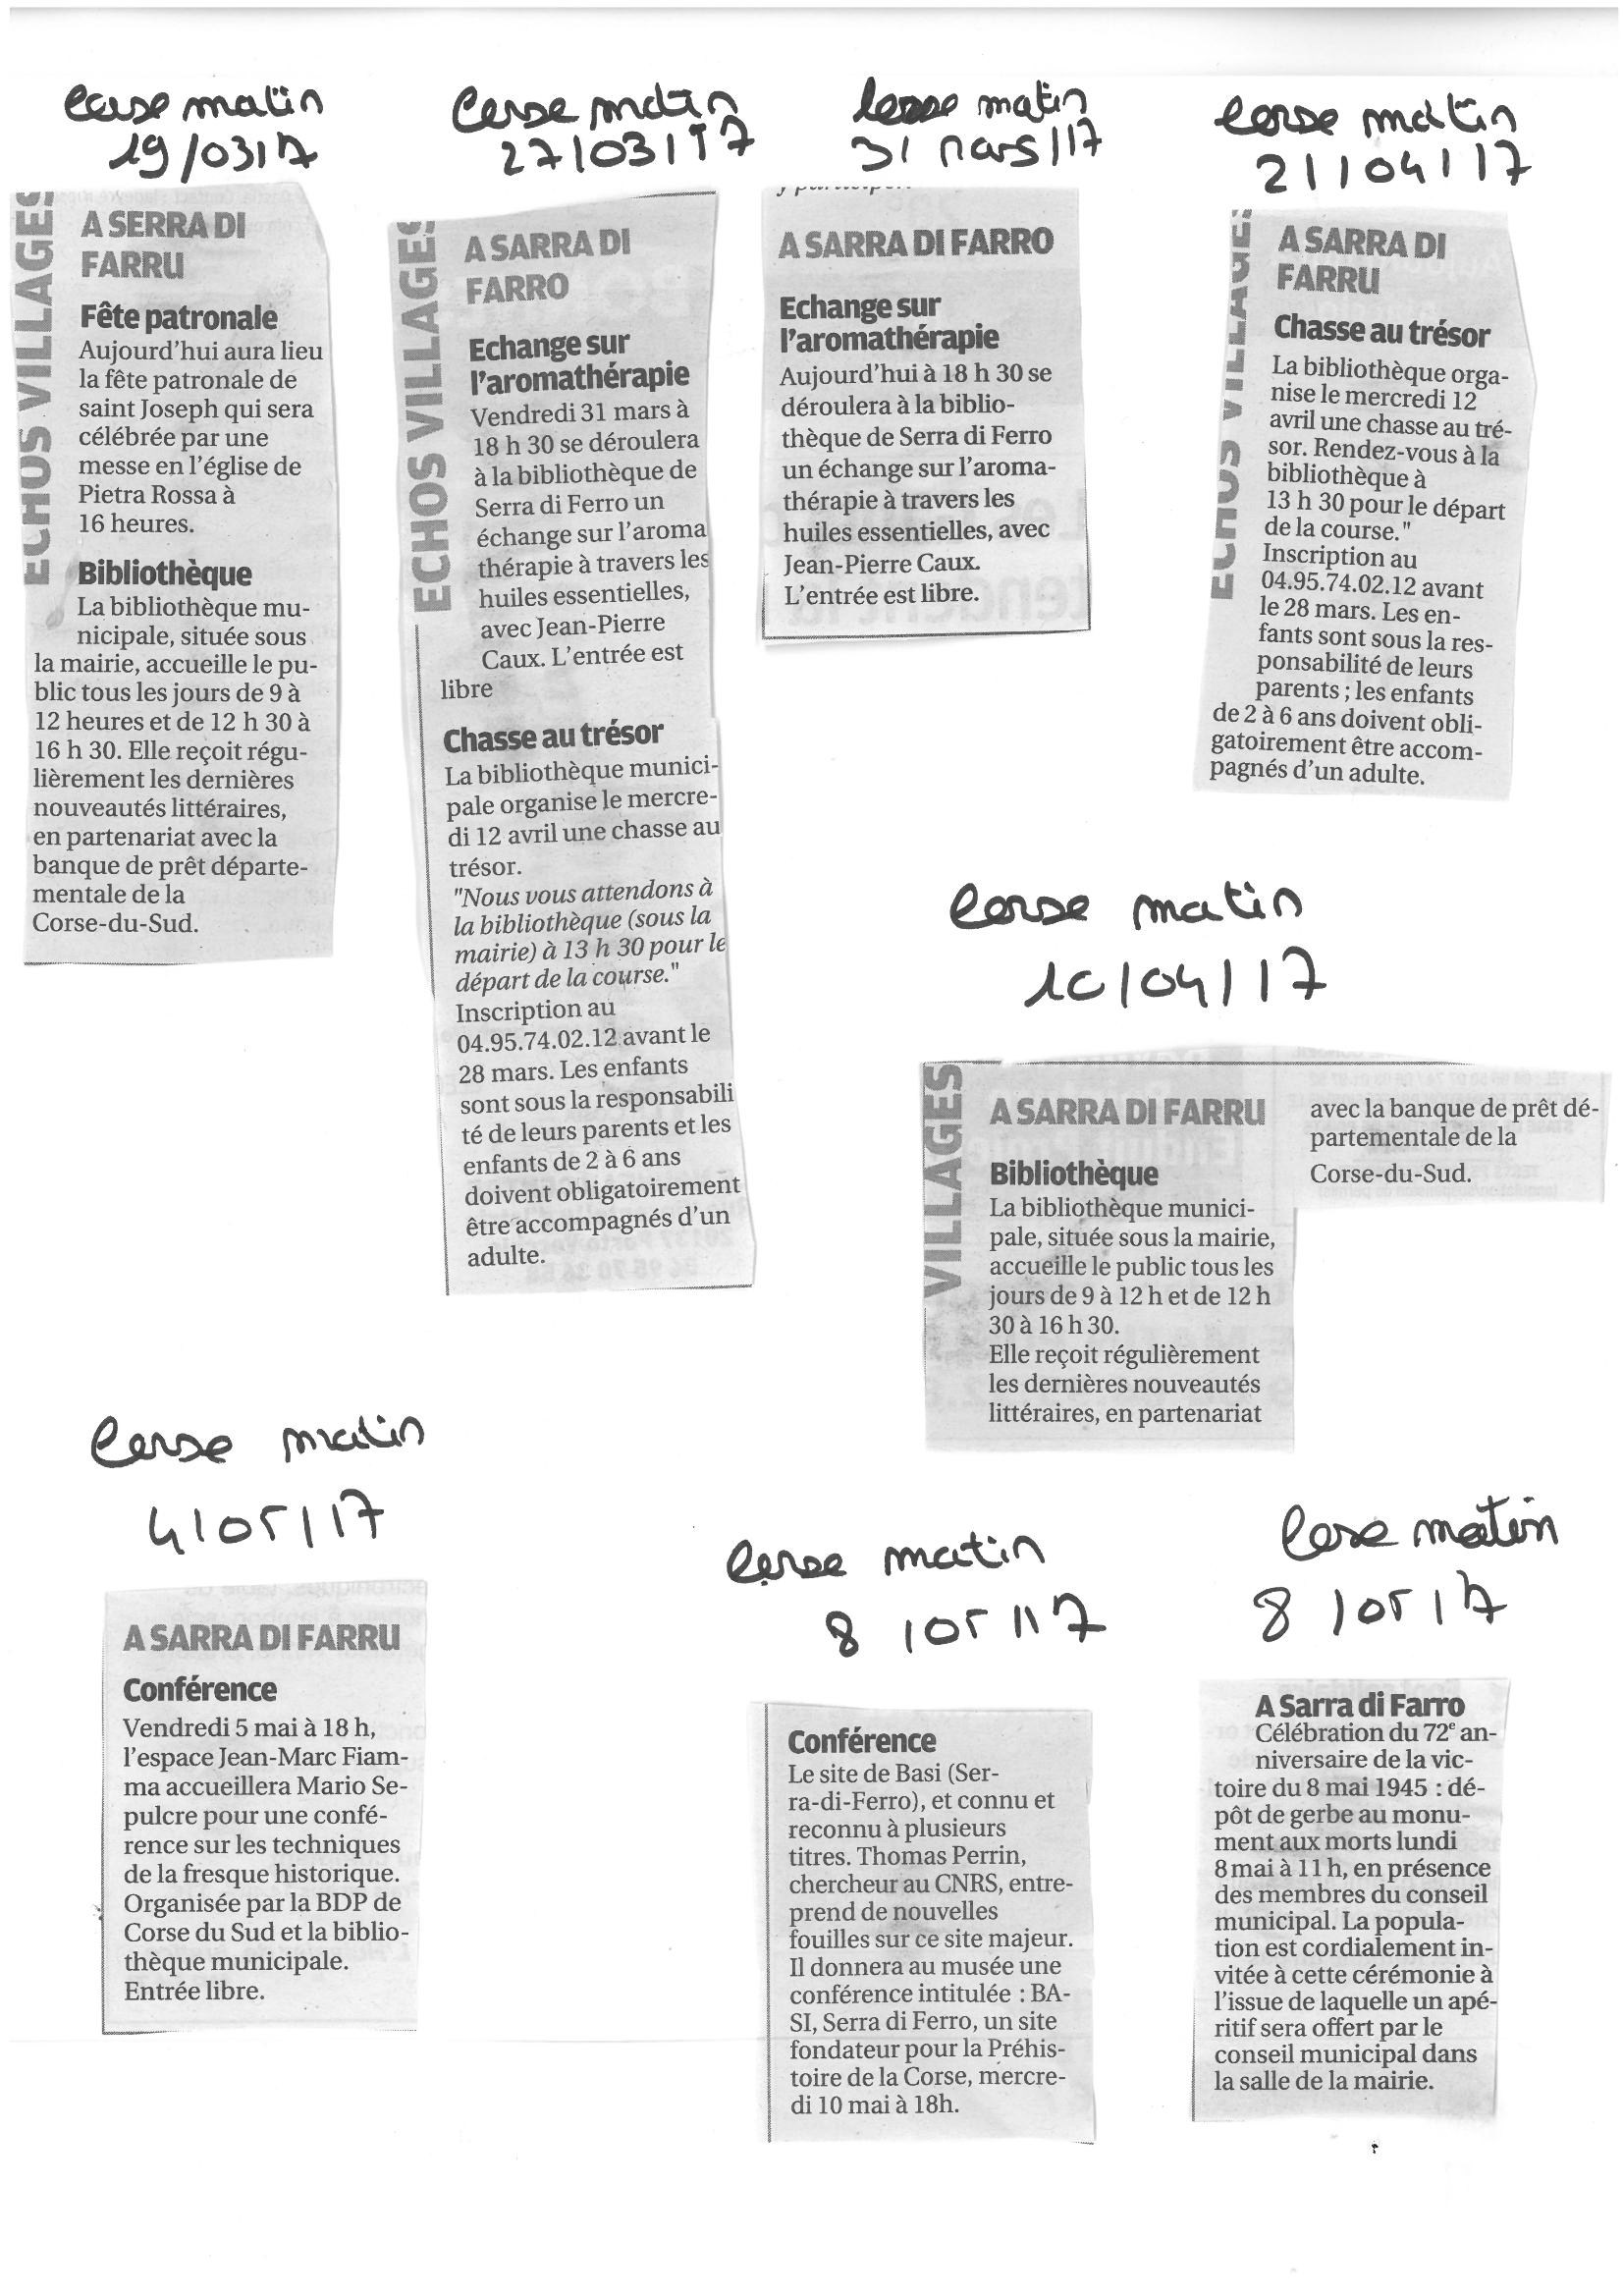 Corse matin
19/03/17
ECHOS VILLAGES
A SERRA DI
FARRU
Fête patronale
Aujourd'hui aura lieu
la fête patronale de
saint Joseph qui sera
célébrée par une
messe en l'église de
Pietra Rossa à
16 heures.
Bibliothèque
La bibliothèque mu-
nicipale, située sous
la mairie, accueille le pu-
blic tous les jours de 9 à
12 heures et de 12 h 30 à
16 h 30. Elle reçoit régu-
lièrement les dernières
nouveautés littéraires,
en partenariat avec la
banque de prêt départe-
mentale de la
Corse-du-Sud.
Corse matin
27/03/17
ECHOS VILLAGES
A SARRA DI
FARRO
Echange sur
l'aromathérapie
Vendredi 31 mars à
18 h 30 se déroulera
à la bibliothèque de
Serra di Ferro un
échange sur l'aroma
thérapie à travers les
huiles essentielles,
avec Jean-Pierre
Caux. L'entrée est
libre
Chasse au trésor
La bibliothèque munici-
pale organise le mercre-
di 12 avril une chasse au
trésor.
"Nous vous attendons à
la bibliothèque (sous la
mairie) à 13 h 30 pour le
départ de la course."
Inscription au
04.95.74.02.12 avant le
28 mars. Les enfants
sont sous la responsabili
té de leurs parents et les
enfants de 2 à 6 ans
doivent obligatoirement
être accompagnés d'un
adulte.
Corse matin
31 mars/17
A SARRA DI FARRO
Echange sur
l'aromathérapie
Aujourd'hui à 18 h 30 se
déroulera à la biblio-
thèque de Serra di Ferro
un échange sur l'aroma-
thérapie à travers les
huiles essentielles, avec
Jean-Pierre Caux.
L'entrée est libre.
Corse matin
21/04/17
ECHOS VILLAGES
A SARRA DI
FARRU
Chasse au trésor
La bibliothèque orga-
nise le mercredi 12
avril une chasse au tré-
sor. Rendez-vous à la
bibliothèque à
13 h 30 pour le départ
de la course."
Inscription au
04.95.74.02.12 avant
le 28 mars. Les en-
fants sont sous la res-
ponsabilité de leurs
parents ; les enfants
de 2 à 6 ans doivent obli-
gatoirement être accom-
pagnés d'un adulte.
Corse matin
10/04/17
VILLAGES
A SARRA DI FARRU
Bibliothèque
La bibliothèque munici-
pale, située sous la mairie,
accueille le public tous les
jours de 9 à 12 h et de 12 h
30 à 16 h 30.
Elle reçoit régulièrement
les dernières nouveautés
littéraires, en partenariat
avec la banque de prêt dé-
partementale de la
Corse-du-Sud.
Corse matin
4/05/17
A SARRA DI FARRU
Conférence
Vendredi 5 mai à 18 h,
l'espace Jean-Marc Fiam-
ma accueillera Mario Se-
pulcre pour une confé-
rence sur les techniques
de la fresque historique.
Organisée par la BDP de
Corse du Sud et la biblio-
thèque municipale.
Entrée libre.
Corse matin
8/05/17
Conférence
Le site de Basi (Ser-
ra-di-Ferro), et connu et
reconnu à plusieurs
titres. Thomas Perrin,
chercheur au CNRS, entre-
prend de nouvelles
fouilles sur ce site majeur.
Il donnera au musée une
conférence intitulée : BA-
SI, Serra di Ferro, un site
fondateur pour la Préhis-
toire de la Corse, mercre-
di 10 mai à 18h.
Corse matin
8/05/17
A Sarra di Farro
Célébration du 72e an-
niversaire de la vic-
toire du 8 mai 1945 : dé-
pôt de gerbe au monu-
ment aux morts lundi
8 mai à 11 h, en présence
des membres du conseil
municipal. La popula-
tion est cordialement in-
vitée à cette cérémonie à
l'issue de laquelle un apé-
ritif sera offert par le
conseil municipal dans
la salle de la mairie.